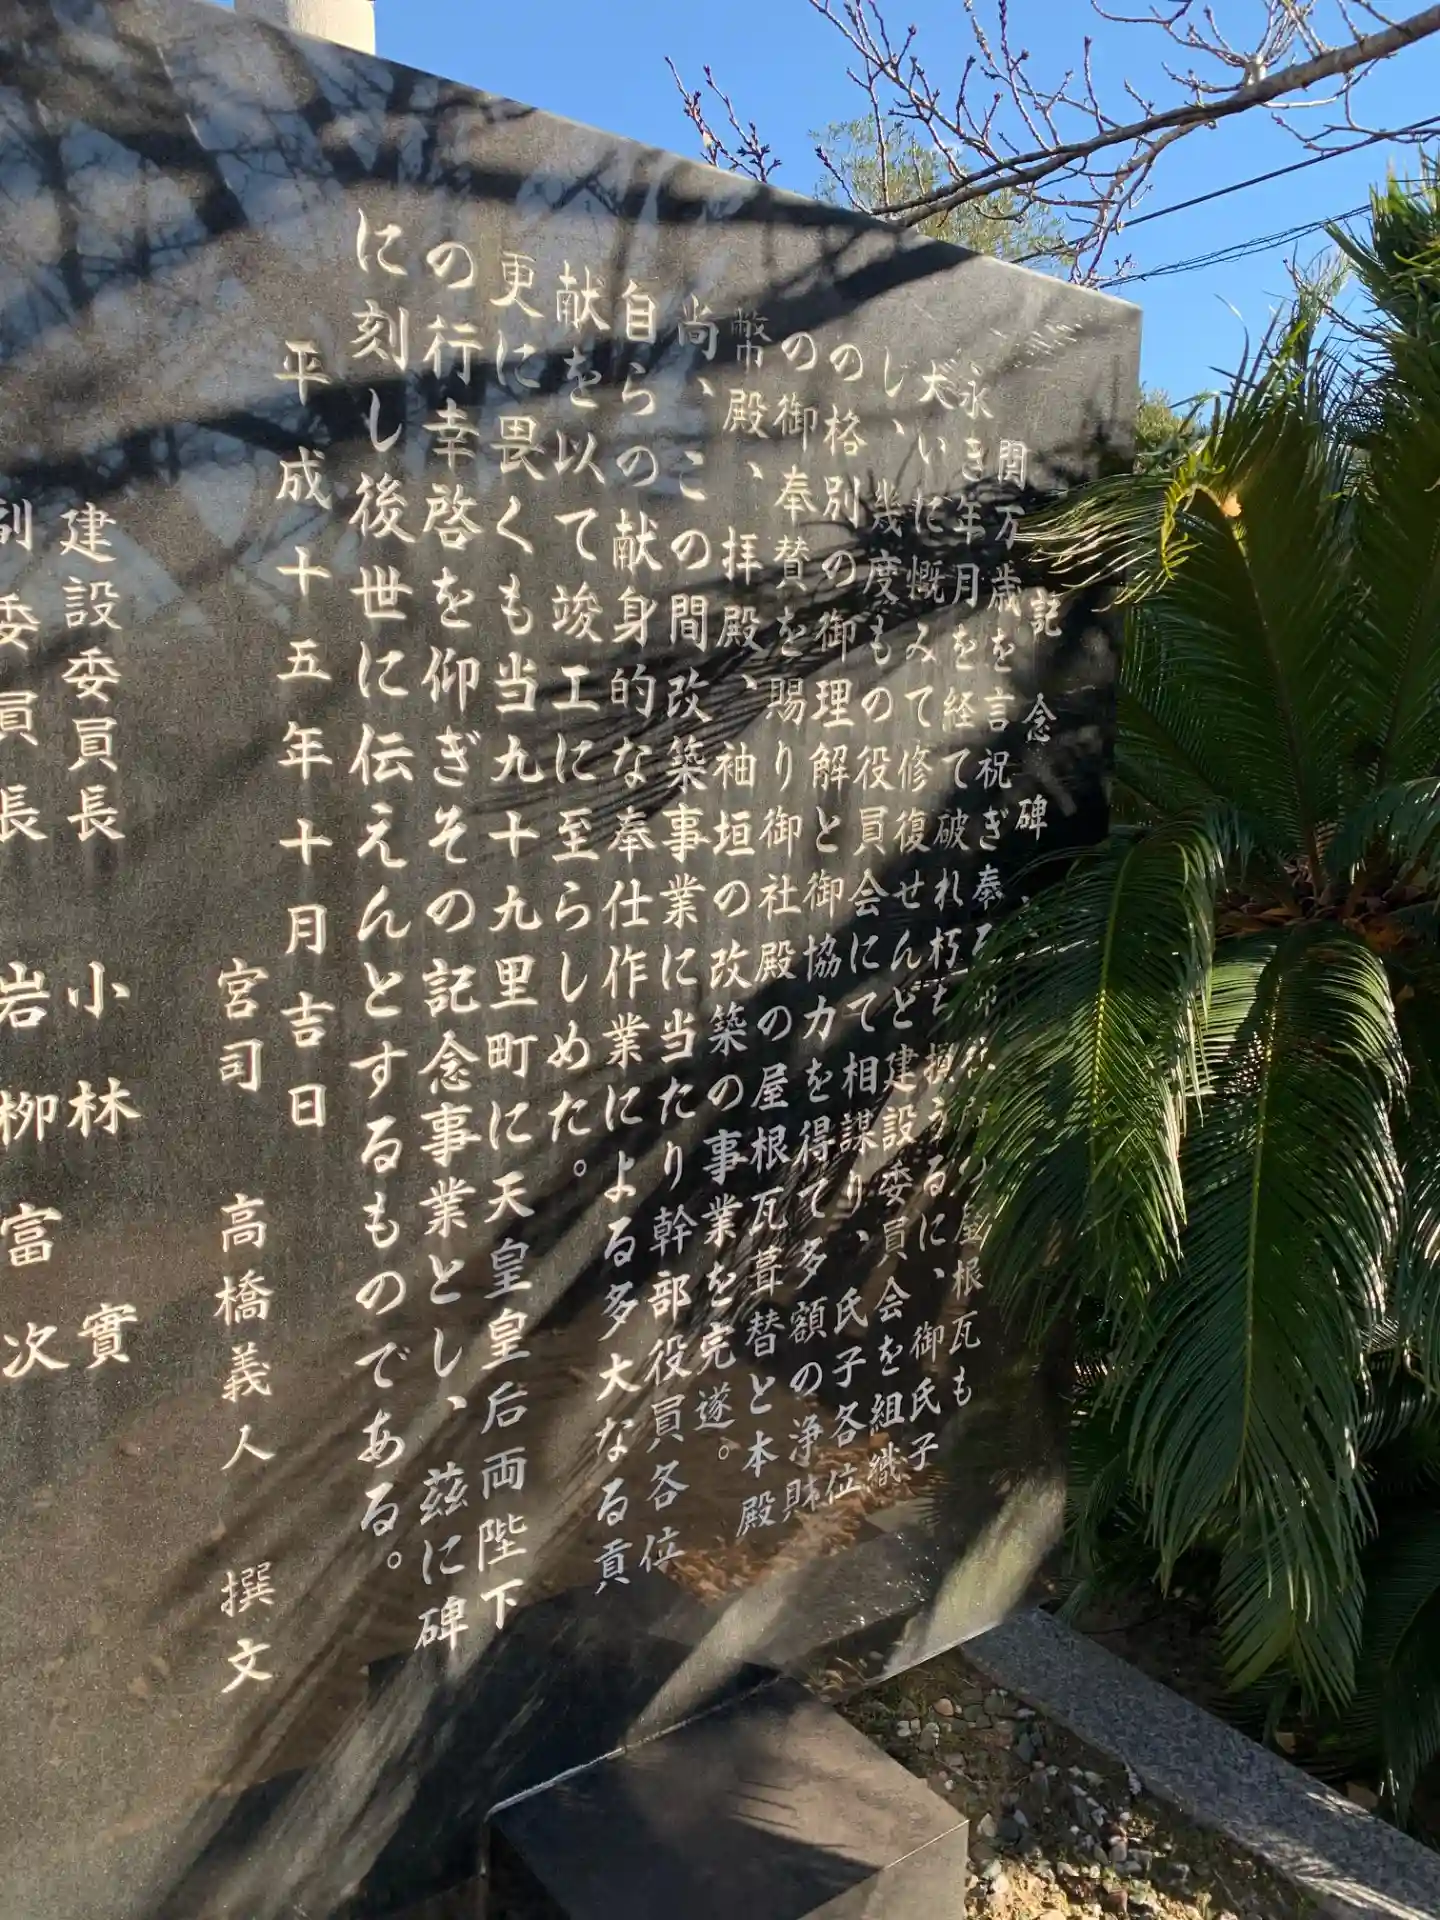 記念碑
関万歳を言祝ぎ奉る 屋根瓦も
永き年月を経て破れ朽ち損うるに、御氏子
大いに慨みて修復せんと建設委員会を組織
し、幾度もの役員会にて相謀り、氏子各位
の格別の御理解と御協力を得て多額の浄財
の御奉賛を賜り御社殿の屋根瓦葺替と本殿
幣殿、拝殿、袖垣の改築の事業を完遂。
尚、この間改築事業に当たり幹部役員各位
自らの献身的な奉仕作業による多大なる貢
献を以て竣工に至らしめた。
更に畏くも当九十九里町に天皇皇后両陛下
の行幸啓を仰ぎその記念事業とし、茲に碑
に刻し後世に伝えんとするものである。
平成十五年十月吉日
宮司 高橋義人 撰文
建設委員長 小林 實
副委員長 岩柳富次